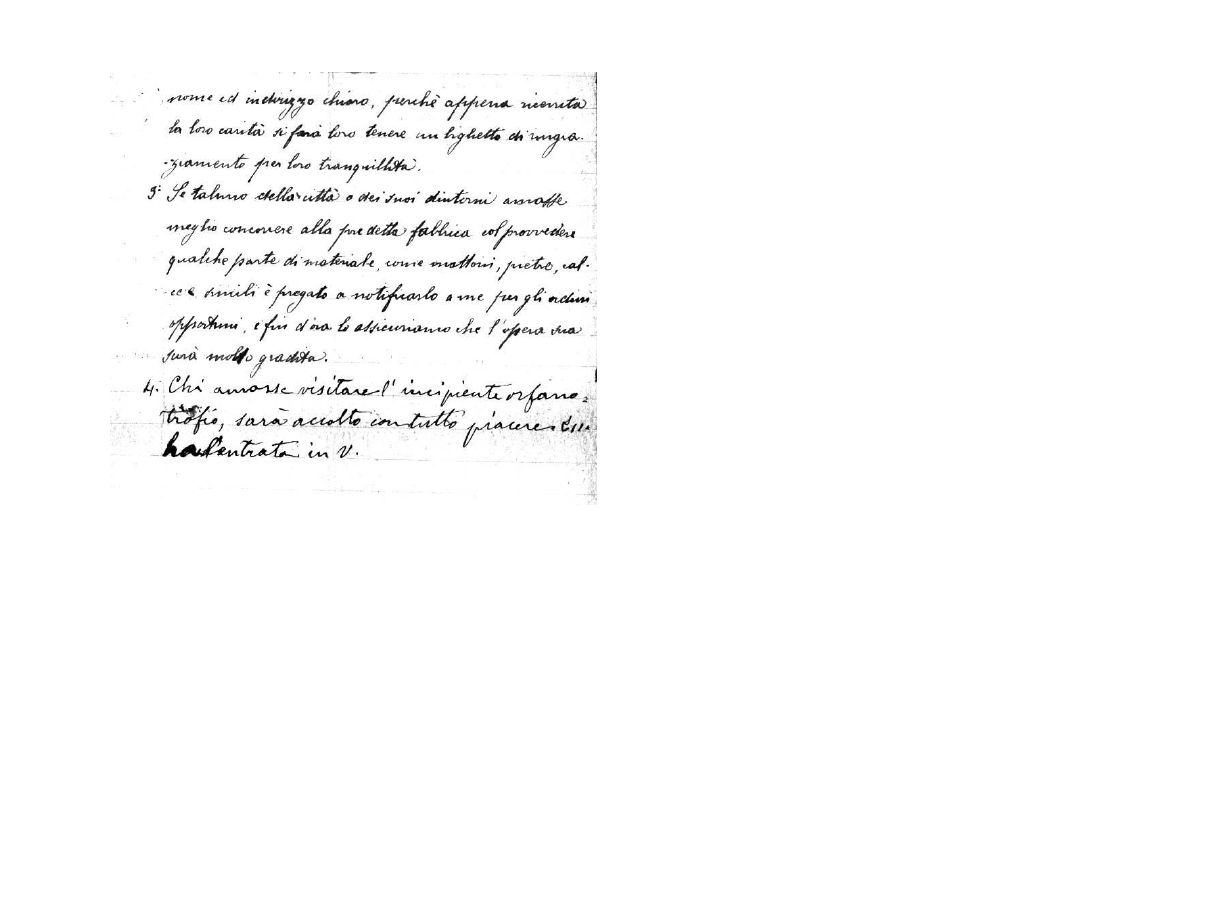 nome ed indirizzo chiaro, perchè appena ricevuta
la loro carità si farà loro tenere un biglietto di ringra-
-ziamento per loro tranquillità.
3º Se taluno della città o dei suoi dintorni amasse
meglio concorrere alla predetta fabbrica col provvedere
qualche parte di materiale, come mattoni, pietre, cal-
-ce e simili è pregato a notificarlo a me per gli ordini
opportuni, e fin d'ora lo assicuriamo che l'opera sua
sarà molto gradita.
4. Chi amasse visitare l'incipiente orfano=
trofio, sarà accolto con tutto piacere.
ha l'entrata in V.